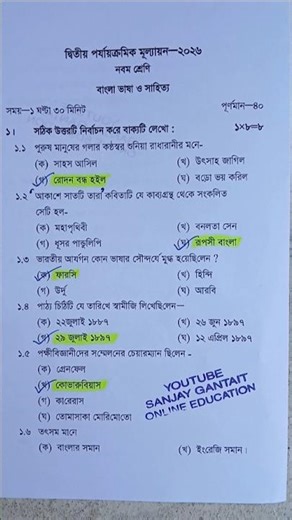 দ্বিতীয় পর্যায়ক্রমিক মূল্যায়ন—২০২৬
নবম শ্রেণি
বাংলা ভাষা ও সাহিত্য
সময়—১ ঘন্টা ৩০ মিনিট পূর্ণমান—৪০
১। সঠিক উত্তরটি নির্বাচন করে বাক্যটি লেখো : ১×৮=৮
১.১ পুরুষ মানুষের গলার কণ্ঠস্বর শুনিয়া রাধারানীর মনে-
(ক) সাহস আসিল (খ) উৎসাহ জাগিল
(গ) রোদন বন্ধ হইল (ঘ) বড়ো ভয় করিল
১.২ 'আকাশে সাতটি তারা' কবিতাটি যে কাব্যগ্রন্থ থেকে সংকলিত
সেটি হল-
(ক) মহাপৃথিবী (খ) বনলতা সেন
(গ) ধূসর পান্ডুলিপি (ঘ) রূপসী বাংলা
১.৩ ভারতীয় আর্যগন কোন ভাষার সৌন্দর্যে মুগ্ধ হয়েছিলেন ?
(ক) ফারসি (খ) হিন্দি
(গ) উর্দু (ঘ) আরবি
১.৪ পাঠ্য চিঠিটি যে তারিখে স্বামীজি লিখেছিলেন—
(ক) ২২জুলাই ১৮৮৭ (খ) ২৬ জুন ১৮৯৭
(গ) ২৯ জুলাই ১৮৯৭ (ঘ) ১২ এপ্রিল ১৮৯৭
১.৫ পক্ষীবিজ্ঞানীদের সম্মেলনের চেয়ারম্যান ছিলেন -
(ক) গ্রেনফেল
(খ) কোভারুবিয়াস
(গ) কারেরাস
(ঘ) তোমাসাকা মোরিমোতো
YOUTUBE
SANJAY GANTAIT
ONLINE EDUCATION
১.৬ তৎসম মানে
(ক) বাংলার সমান (খ) ইংরেজি সমান।